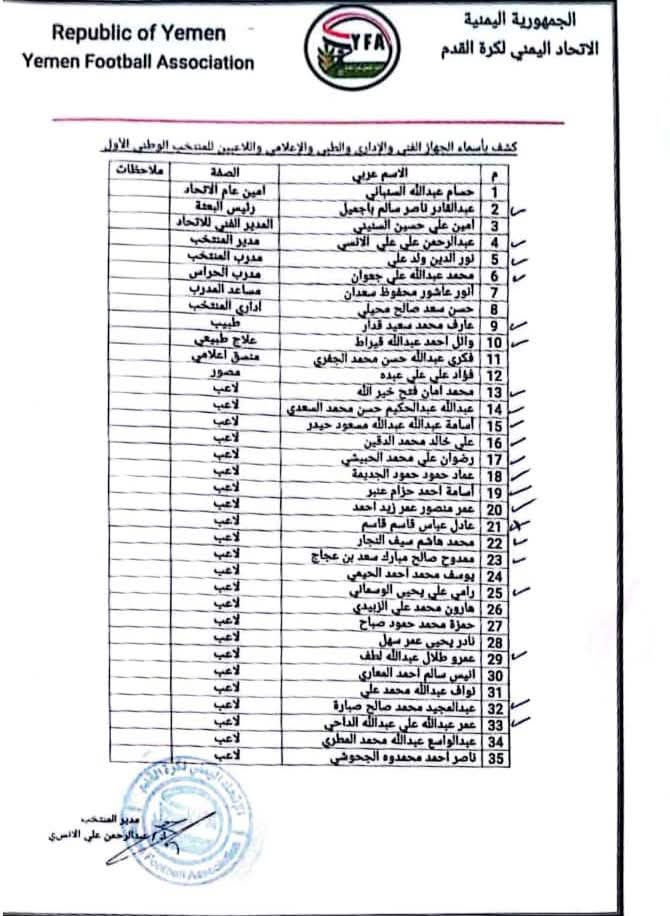 Republic of Yemen
Yemen Football Association
YFA
الجمهورية اليمنية
الاتحاد اليمني لكرة القدم
كشف بأسماء الجهاز الفني والإداري والطبي والإعلامي واللاعبين للمنتخب الوطني الأول
م الاسم عربي الصفة ملاحظات
1 حسام عبدالله السنباني امين عام الاتحاد
2 عبدالقادر ناصر سالم باجميل رئيس البعثة
3 امين علي حسين السنيني المدير الفني للاتحاد
4 عبدالرحمن علي علي الانسي مدير المنتخب
5 نور الدين ولد علي مدرب المنتخب
6 محمد عبدالله علي جعوان مدرب الحراس
7 أنور عاشور محفوظ سعدان مساعد المدرب
8 حسن سعد صالح محيلي اداري المنتخب
9 عارف محمد سعيد قدار طبيب
10 وائل احمد عبدالله قيراط علاج طبيعي
11 فكري عبدالله حسن محمد الجفري منسق اعلامي
12 فؤاد علي علي عبده مصور
13 محمد امان فتح خير الله لاعب
14 عبدالله عبدالحكيم حسن محمد السعدي لاعب
15 أسامة عبدالله عبدالله مسعود حيدر لاعب
16 علي خالد محمد الدقين لاعب
17 رضوان علي محمد الحبيشي لاعب
18 عماد حمود حمود الجديمة لاعب
19 أسامة احمد حزام عنبر لاعب
20 عمر منصور عمر زيد احمد لاعب
21 عادل عباس قاسم قاسم لاعب
22 محمد هاشم سيف النجار لاعب
23 ممدوح صالح مبارك سعد بن عجاج لاعب
24 يوسف محمد احمد الحيمي لاعب
25 رامي علي يحيى الوسماني لاعب
26 هارون محمد علي الزبيدي لاعب
27 حمزة محمد حمود صباح لاعب
28 نادر يحيى عمر سهل لاعب
29 عمرو طلال عبدالله لطف لاعب
30 انيس سالم احمد المعاري لاعب
31 نواف عبدالله محمد علي لاعب
32 عبدالمجيد محمد صالح صبارة لاعب
33 عمر عبدالله علي عبدالله الداحي لاعب
34 عبدالواسع عبدالله محمد المطري لاعب
35 ناصر احمد محمدوه الجحوشي لاعب
مدير المنتخب
عبدالرحمن علي الانسي
الاتحاد اليمني لكرة القدم
Football Association